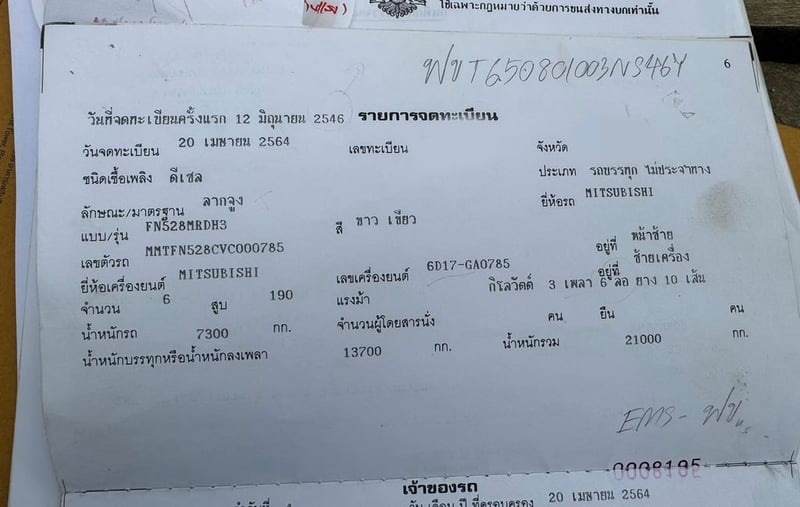 ใช้เฉพาะกฎหมายว่าด้วยการขนส่งทางบกเท่านั้น
ฟขT650801003NS464
6
วันที่จดทะเบียนครั้งแรก 12 มิถุนายน 2546 รายการจดทะเบียน
วันจดทะเบียน 20 เมษายน 2564 เลขทะเบียน จังหวัด
ชนิดเชื้อเพลิง ดีเซล ประเภท รถบรรทุก ไม่ประจำทาง
ลักษณะ/มาตรฐาน ลากจูง ยี่ห้อรถ MITSUBISHI
แบบ/รุ่น FN528MRDH3 สี ขาว เขียว
เลขตัวรถ MMTFN528CVC000785 อยู่ที่ หน้าซ้าย
ยี่ห้อเครื่องยนต์ MITSUBISHI เลขเครื่องยนต์ 6D17-GA0785 อยู่ที่ ซ้ายเครื่อง
จำนวน 6 สูบ 190 แรงม้า กิโลวัตต์ 3 เพลา 6 ล้อ ยาง 10 เส้น
น้ำหนักรถ 7300 กก. จำนวนผู้โดยสารนั่ง คน ยืน คน
น้ำหนักบรรทุกหรือน้ำหนักลงเพลา 13700 กก. น้ำหนักรวม 21000 กก.
EMS - ฟข
0008195
เจ้าของรถ
วัน เดือน ปี ที่ครอบครอง 20 เมษายน 2564